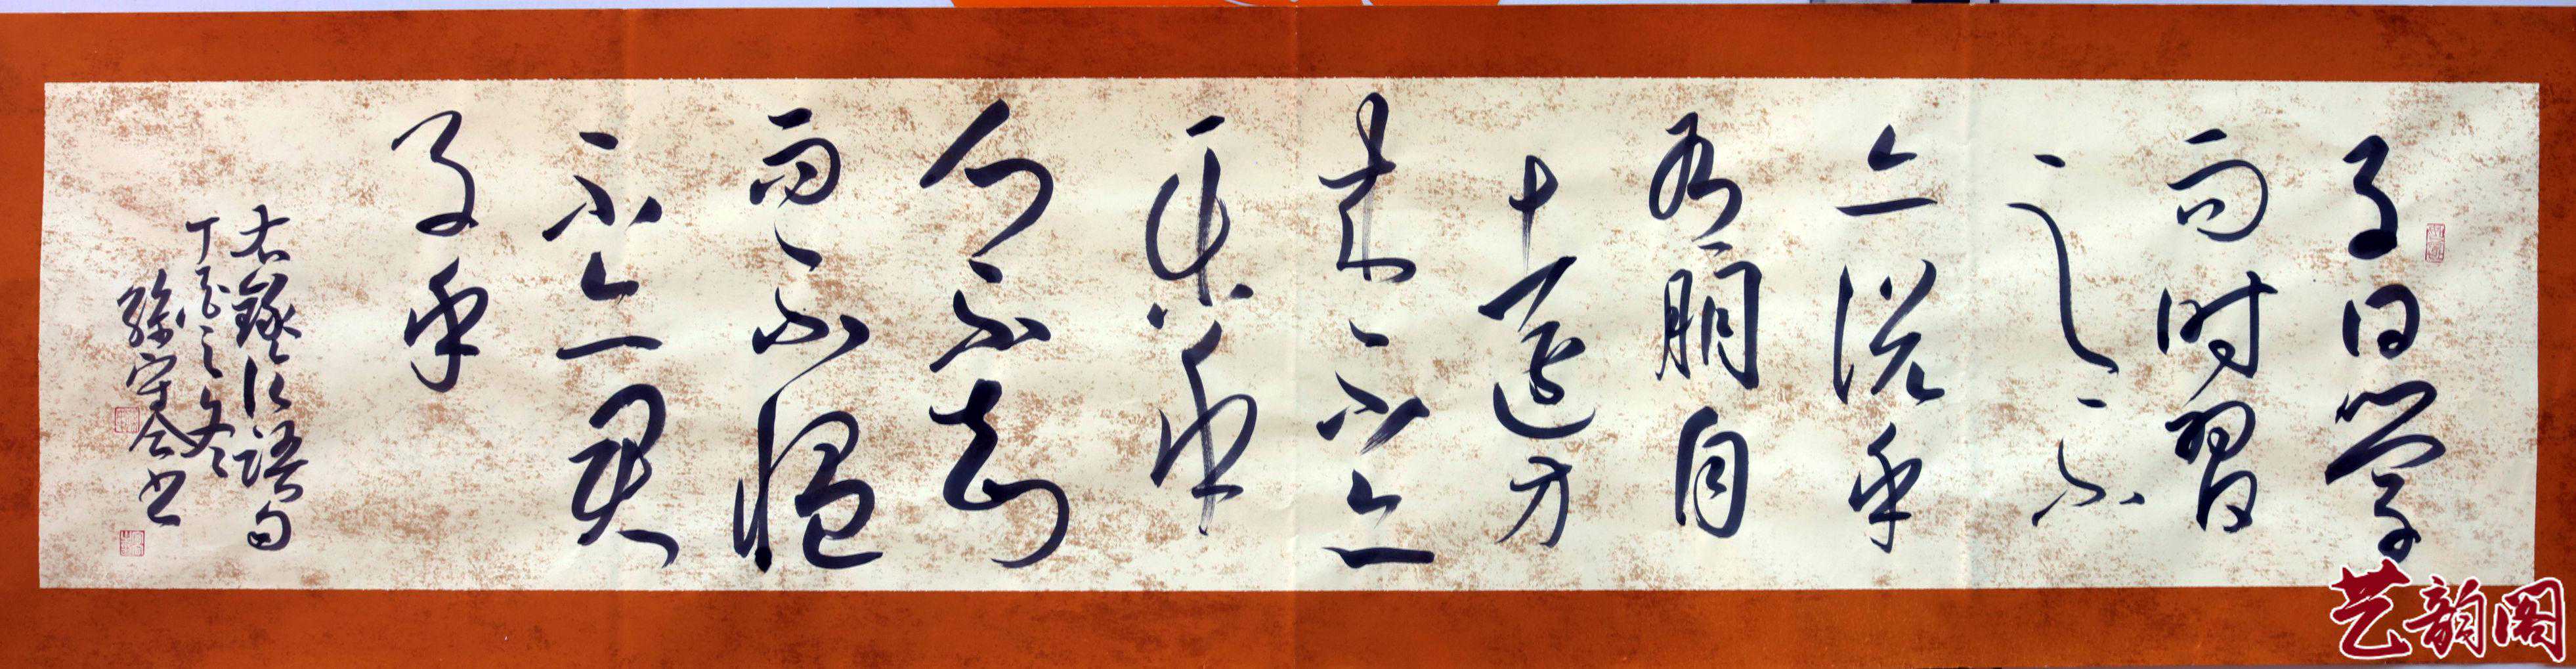 子曰学
而时習
之不
亦说乎
有朋自
遠方
来不亦
乐乎
人不知
而不愠
不亦君
子乎
右錄论語句
丁酉之冬
孫守书
艺韵阁